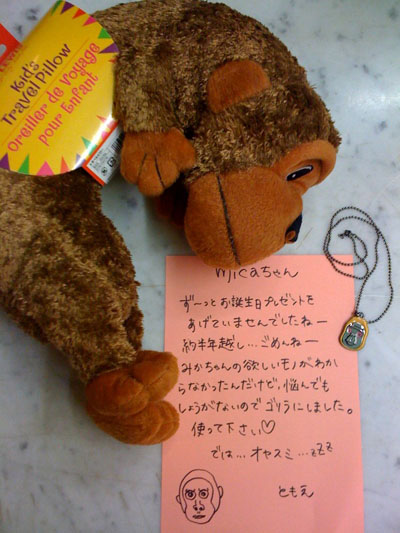 Kid's
Travel Pillow
Oreiller de voyage
pour Enfant
micaちゃん
ず〜っとお誕生日プレゼントを
あげていませんでしたねー
約半年越し…ごめんねー
みかちゃんの欲しいモノがわか
らなかったんだけど、悩んでも
しょうがないのでゴリラにしました。
使って下さい♡
では…オヤスミ…zzz
ともえ